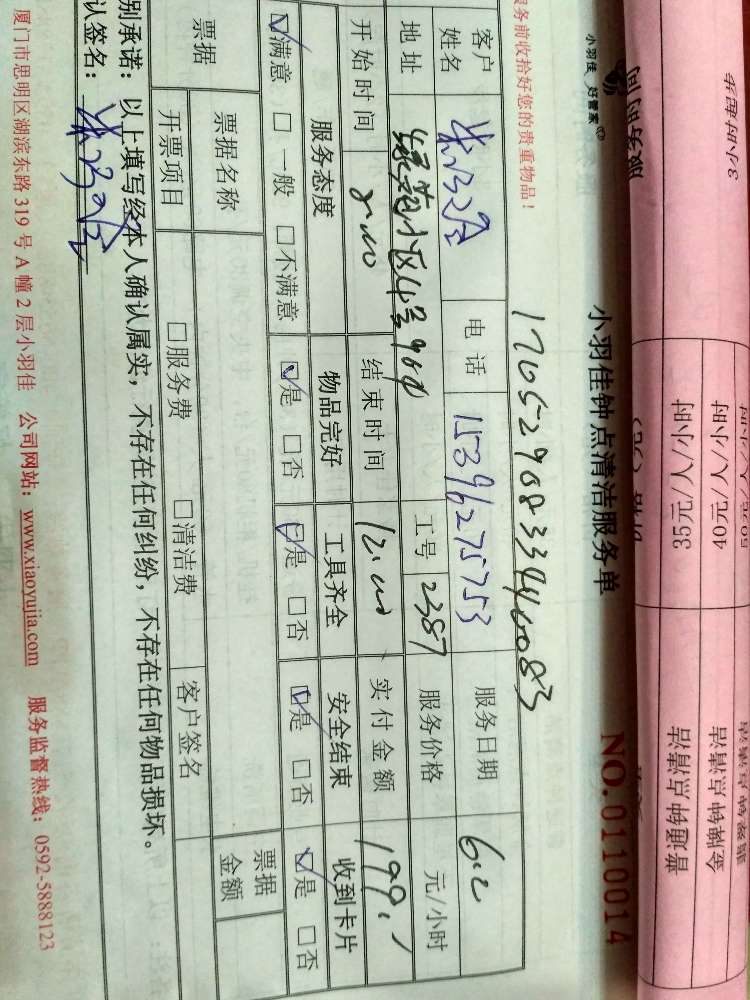 3小时起步
40元/人/小时
金牌钟点清洁
35元/人/小时
普通钟点清洁
服务时间
小羽佳 好管家
小羽佳钟点清洁服务单
NO.0110014
服务前收拾好您的贵重物品!
客户姓名 电话 15396275753 服务日期 6.2
地址 工号 2387 服务价格 元/小时
开始时间 8:00 结束时间 12:00 实付金额 199.1
服务态度 物品完好 工具齐全 安全结束 收到卡片
☑满意 □一般 □不满意 ☑是 □否 ☑是 □否 ☑是 □否 ☑是 □否
票据 票据名称 票据金额
开票项目 □服务费 □清洁费 客户签名
别承诺:以上填写经本人确认属实,不存在任何纠纷,不存在任何物品损坏。
认签名:
厦门市思明区湖滨东路 319 号 A 幢 2 层小羽佳 公司网站:www.xiaoyujia.com 服务监督热线:0592-5888123